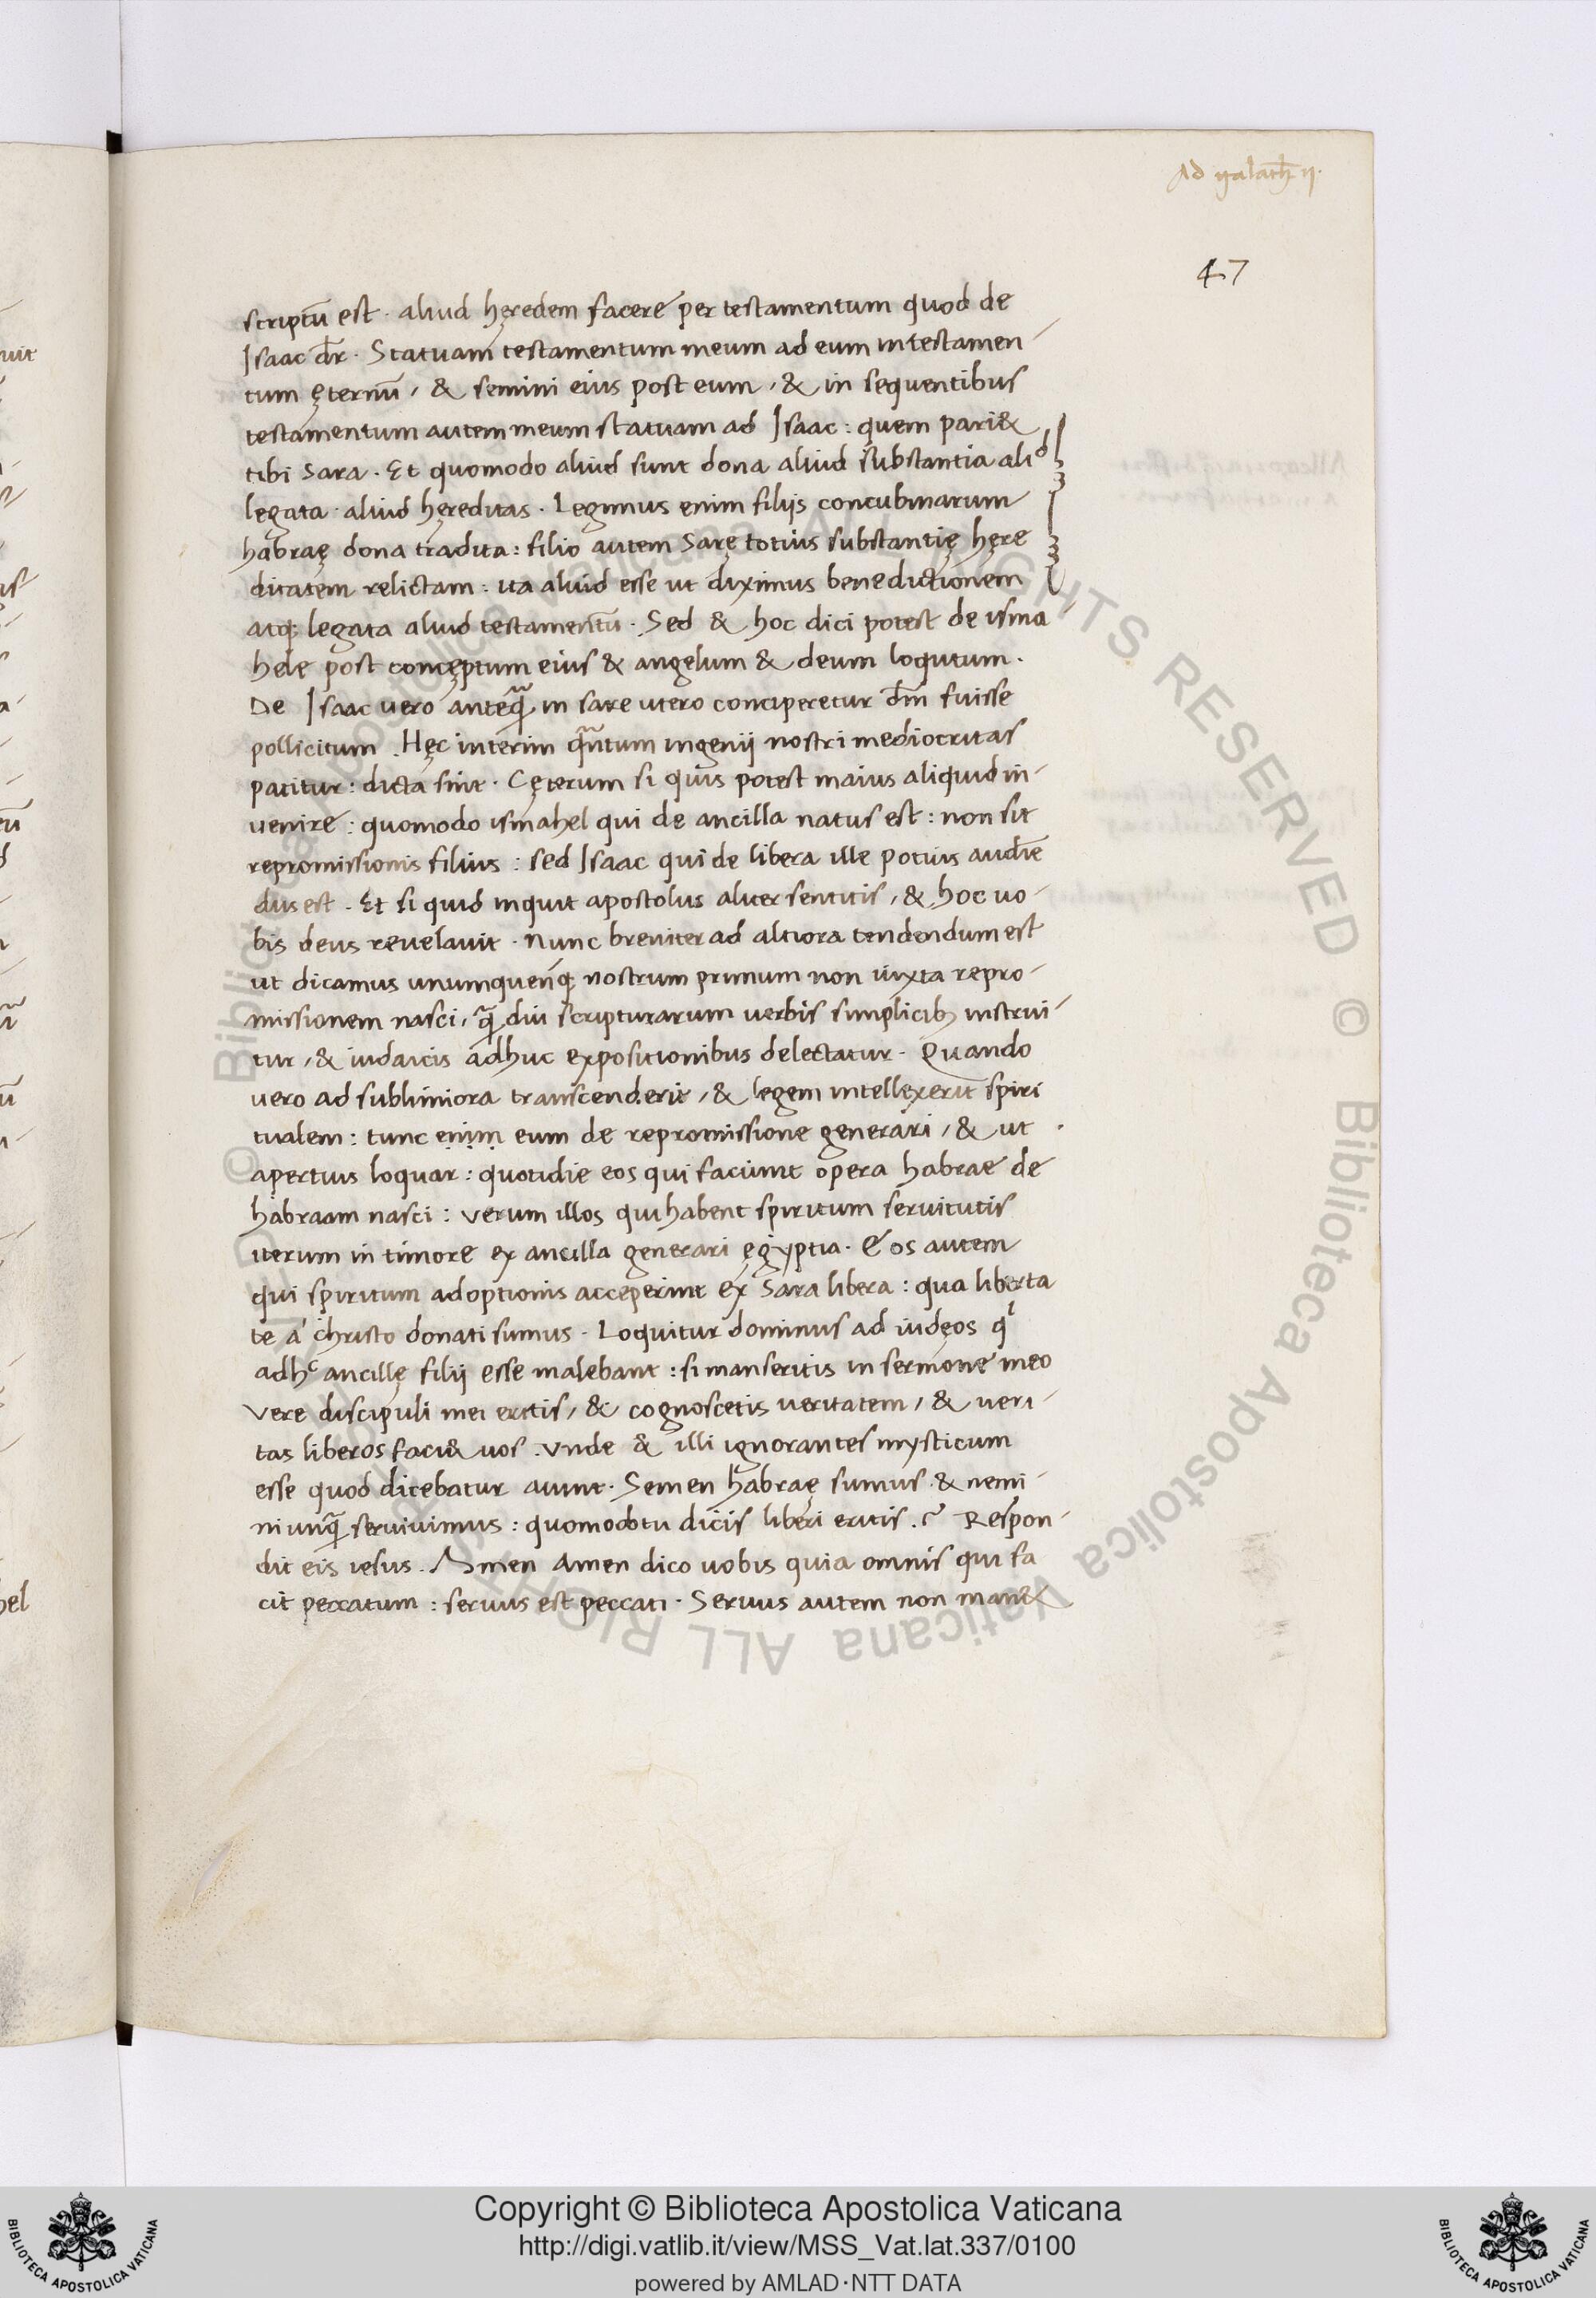 Ad galath̄ ij.
47
scriptū est · aliud hęredem facere per testamentum quod de
Isaac dr̄ · Statuam testamentum meum ad eum in testamen-
tum ęternū, & semini eius post eum, & in sequentibus
testamentum autem meum statuam ad Isaac : quem pari&
tibi Sara · Et quomodo aliud sunt dona aliud substantia aliᵈ
legata · aliud hęreditas · Legimus enim filijs concubinarum
habraę dona tradita : filio autem Sarę totius substantię hęre
ditatem relictam : ita aliud esse ut diximus benedictionem
atq; legata aliud testamentū · Sed & hoc dici potest de isma-
hele post conceptum eius & angelum & deum loqutum .
De Isaac uero anteq̄ in sare utero conciperetur dn̄m fuisse
pollicitum . Hęc interim qn̄tum ingenij nostri mediocritas
patitur : dicta sint · Cęterum si quis potest maius aliquid in-
uenire : quomodo ismahel qui de ancilla natus est : non sit
repromissionis filius : sed Isaac qui de libera ille potius audiē
dus est . Et si quid inquit apostolus aliter sentitis, & hoc uo-
bis deus reuelauit · nunc breuiter ad altiora tendendum est
ut dicamus unumquenq; nostrum primum non iuxta repro-
missionem nasci, q̄ diu scripturarum uerbis simplicib; instrui-
tur, & iudaicis adhuc expositionibus delectatur · Quando
uero ad sublimiora transcenderit, & legem intellexerit spiri
tualem : tunc enim eum de repromissione generari, & ut
apertius loquar : quotidie eos qui faciunt opera habrae de
habraam nasci : verum illos qui habent spiritum seruitutis
iterum in timore ex ancilla generari ęgyptia · Eos autem
qui spiritum adoptionis acceperint ex Sara libera : qua liberta
te á christo donati sumus · Loquitur dominus ad iudęos qⁱ
adhᶜ ancillę filij esse malebant : si manseritis in sermone meo
vere discipuli mei eritis, & cognoscetis ueritatem, & ueri-
tas liberos faci& uos . vnde & illi ignorantes mysticum
esse quod dicebatur aiunt · Semen habraę sumus · & nemi-
ni unq̄ seruiuimus : quomodo tu dicis liberi eritis .? Respon-
dit eis iesus . Amen Amen dico uobis quia omnis qui fa
cit peccatum : seruus est peccati · Seruus autem non man&
Copyright © Biblioteca Apostolica Vaticana
http://digi.vatlib.it/view/MSS_Vat.lat.337/0100
powered by AMLAD·NTT DATA